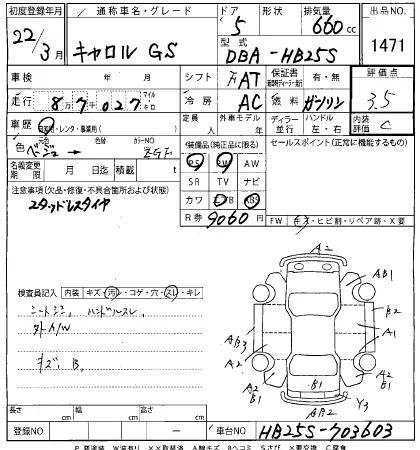 初度登録年月 通称車名・グレード ドア 形状 排気量 出品NO
22/3月 キャロル GS 5 660cc 1471
型式 DBA-HB25S
車検 年 月 シフト AT 保証書 有・無 評価点
走行 87027 マイル キロ 冷房 AC 燃料 ガソリン 3.5
車歴 自家用・レンタ・事業用( ) 定員 人 外車モデル ディーラー 並行 ハンドル 左・右 内装評価 C
色 ベージュ 色替 カラーNO ZGF 装備品(純正品に限る) セールスポイント(正常に機能するもの)
名義変更期限 月 日迄 積載 t PS PW AW
注意事項(欠品・修復・不具合箇所および状態) SR TV ナビ
スタッドレスタイヤ カワ ABS
R券 9060円 FW キズ・ヒビ割・リペア跡・X要
検査員記入 内装 キズ・汚レ・コゲ・穴・スレ・キレ
シートシミ, ハンドルスレ,
外A/W
キズ, B,
A2
A2 AB1
B2
A1
AB3
A2 A2
B1 B1
B1
AB2 Y3
長さ cm 幅 cm 高さ cm
登録NO 車台NO HB25S-703603
P 要塗装 W波有り ××取替済 A線キズ Bヘコミ Sさび ×要交換 C腐食